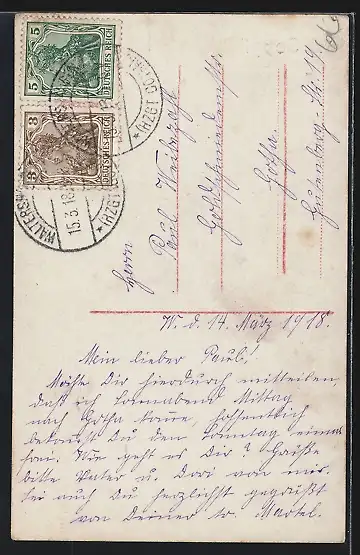 5
5
DEUTSCHES REICH
3
3
DEUTSCHES REICH
WALTERSH
15.3.18
(HZGT. GOTHA)
Herrn
Paul
Goldschmiedemstr.
Gotha.
Gutenberg-Str. 19.
W. d. 14. März 1918.
Mein lieber Paul!
Möchte Dir hierdurch mitteilen,
daß ich Sonnabend Mittag
nach Gotha komme, hoffentlich
bekommst Du den Sonntag einmal
frei. Wie geht es Dir? Grüße
bitte Vater u. Dori von mir.
Sei auch Du herzlichst gegrüßt
von Deiner tr.